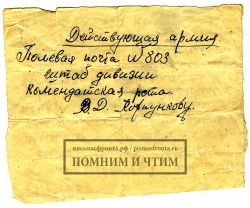 Действующая армия
Полевая почта № 803
штаб дивизии
Комендатская рота.
В. Д.
письмасфронта.рф / pismasfronta.ru
ПОМНИМ И ЧТИМ